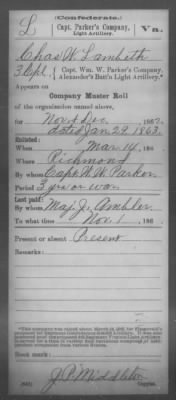 (Confederate.)
L Capt. Parker's Company, Light Artillery. Va.
Chas W. Lambeth
3 Corpl., Capt. Wm. W. Parker's Company, Alexander's Batt'n Light Artillery.
Appears on
Company Muster Roll
of the organization named above,
for Nov & Dec, 1862.
dated Jan 29 1863.
Enlisted:
When Mar 14, 186
Where Richmond
By whom Capt. W. W. Parker
Period 3 yrs or war
Last paid:
By whom Maj. J. Ambler
To what time Nov 1, 186
Present or absent Present
Remarks:
Book mark:
J. P. Middleton
Copyist.